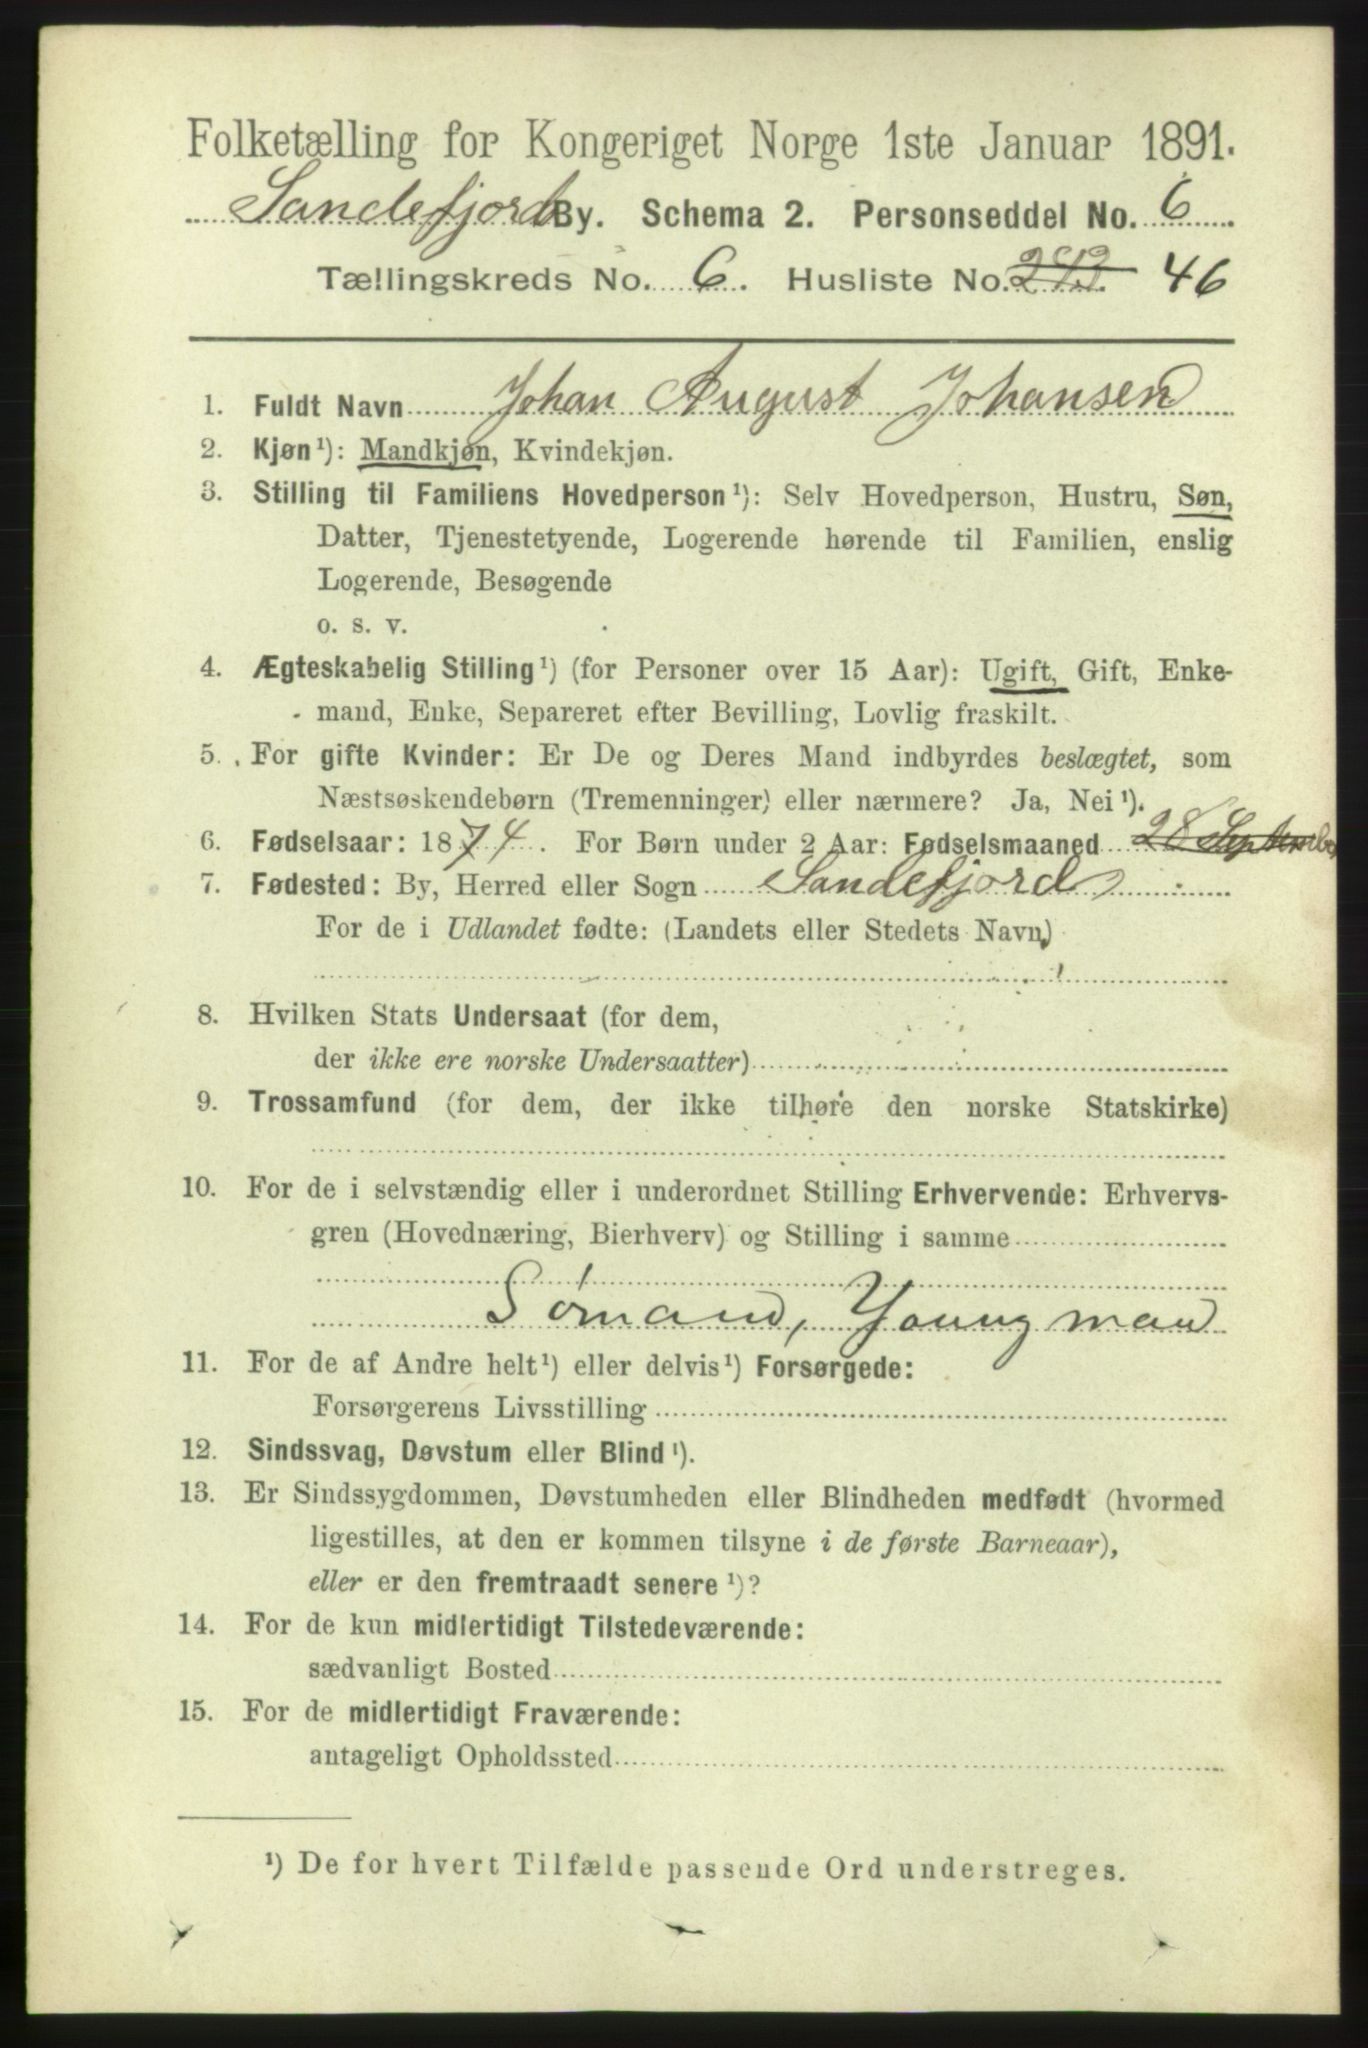 Folketælling for Kongeriget Norge 1ste Januar 1891.
Sandefjord By. Schema 2. Personseddel No. 6
Tællingskreds No. 6. Husliste No. 46
1. Fuldt Navn Johan August Johansen
2. Kjøn¹): Mandkjøn, Kvindekjøn.
3. Stilling til Familiens Hovedperson¹): Selv Hovedperson, Hustru, Søn,
Datter, Tjenestetyende, Logerende hørende til Familien, enslig
Logerende, Besøgende
o. s. v.
4. Ægteskabelig Stilling¹) (for Personer over 15 Aar): Ugift, Gift, Enke-
mand, Enke, Separeret efter Bevilling, Lovlig fraskilt.
5. For gifte Kvinder: Er De og Deres Mand indbyrdes beslægtet, som
Næstsøskendebørn (Tremenninger) eller nærmere? Ja, Nei¹).
6. Fødselsaar: 1874. For Børn under 2 Aar: Fødselsmaaned 28 September
7. Fødested: By, Herred eller Sogn Sandefjord
For de i Udlandet fødte: (Landets eller Stedets Navn)
8. Hvilken Stats Undersaat (for dem,
der ikke ere norske Undersaatter)
9. Trossamfund (for dem, der ikke tilhøre den norske Statskirke)
10. For de i selvstændig eller i underordnet Stilling Erhvervende: Erhvervs-
gren (Hovednæring, Bierhverv) og Stilling i samme
Sømand, Youngman
11. For de af Andre helt¹) eller delvis¹) Forsørgede:
Forsørgerens Livsstilling
12. Sindssvag, Døvstum eller Blind¹).
13. Er Sindssygdommen, Døvstumheden eller Blindheden medfødt (hvormed
ligestilles, at den er kommen tilsyne i de første Barneaar),
eller er den fremtraadt senere¹)?
14. For de kun midlertidigt Tilstedeværende:
sædvanligt Bosted
15. For de midlertidigt Fraværende:
antageligt Opholdssted
¹) De for hvert Tilfælde passende Ord understreges.